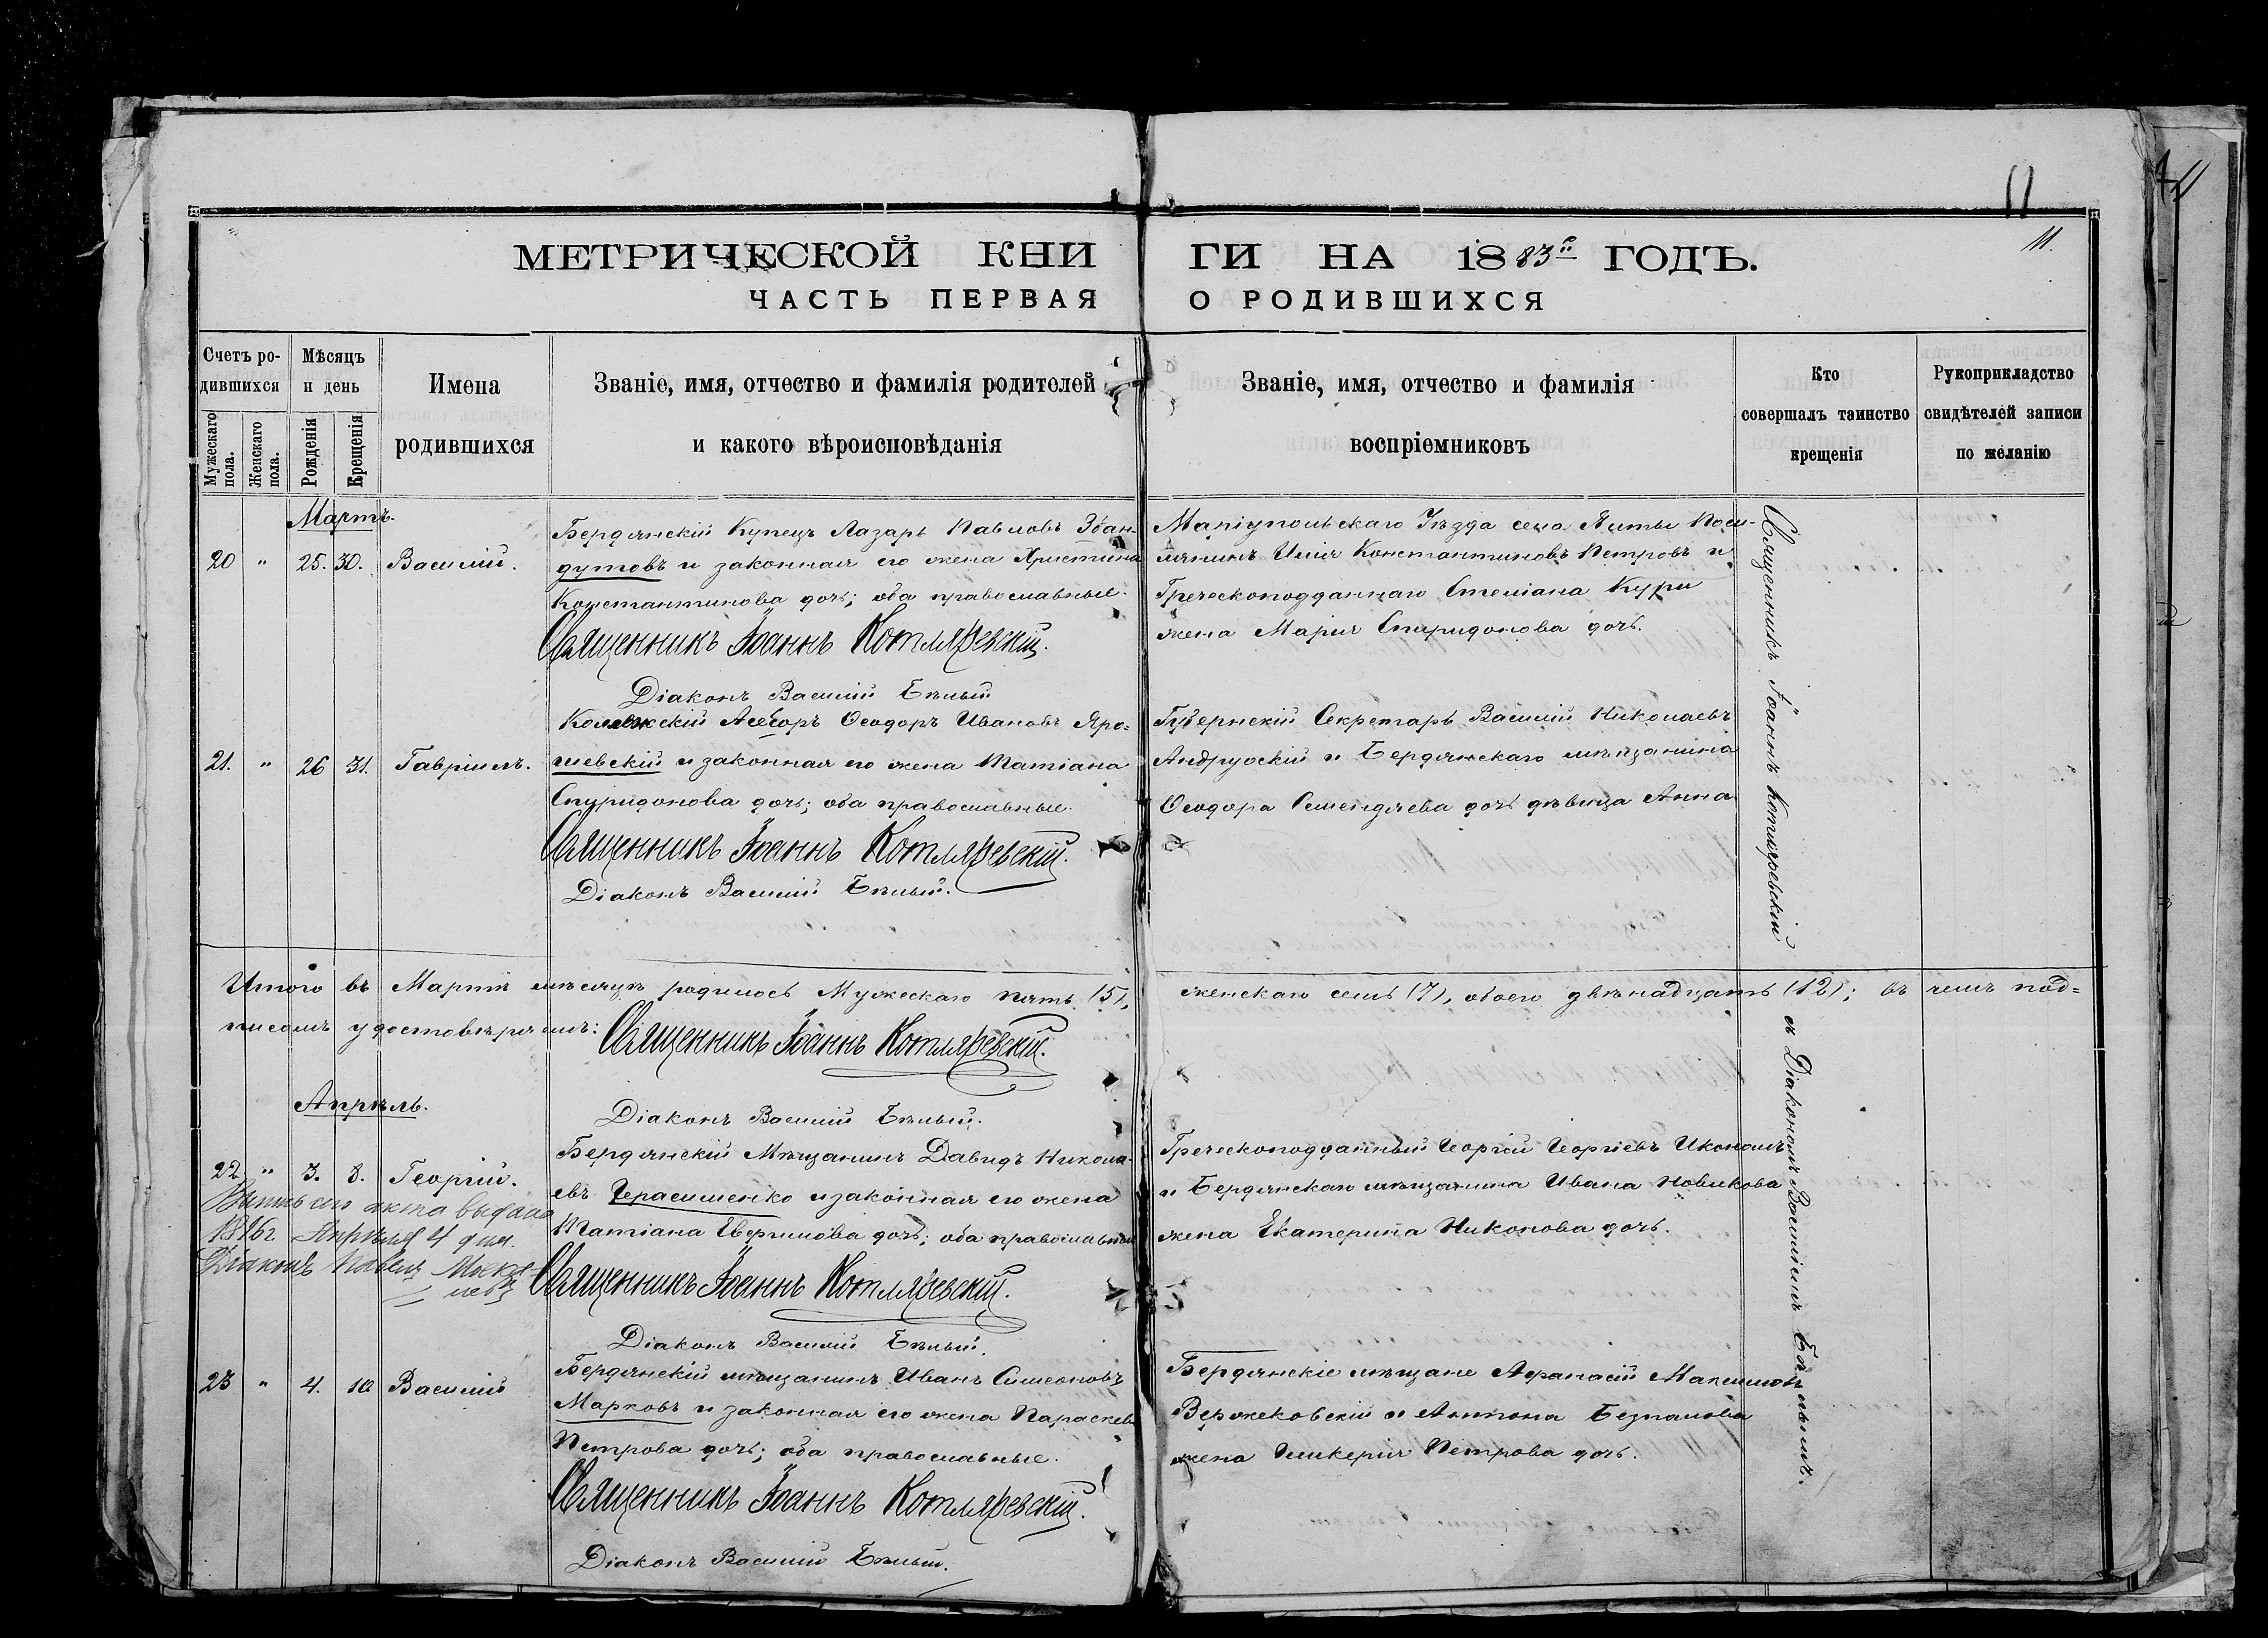 11
МЕТРИЧЕСКОЙ КНИ ГИ НА 1883й ГОДЪ.
11.
ЧАСТЬ ПЕРВАЯ О РОДИВШИХСЯ
Счетъ ро-
дившихся
Мужескаго пола.
Женскаго пола.
Мѣсяцъ
и день
Рожденія
Крещенія
Имена
родившихся
Званіе, имя, отчество и фамилія родителей
и какого вѣроисповѣданія
Званіе, имя, отчество и фамилія
воспріемниковъ
Кто
совершалъ таинство
крещенія
Рукоприкладство
свидѣтелей записи
по желанію
Мартъ.
20 " 25. 30. Василій.
Бердянскій Купецъ Лазарь Павловъ Эбан-
дутовъ и законная его жена Христина
Константинова дочь; оба православные.
Священникъ Іоаннъ Котляревскій.
Діаконъ Василій Бѣлый
Маріупольскаго Уѣзда села Ялты Посе-
лянинъ Илія Константиновъ Петровъ и
Греческоподданнаго Стеліана Кури
жена Марія Спиридонова дочь.
21. " 26 31. Гавріилъ.
Колежскій Асесоръ Ѳеодоръ Ивановъ Яро-
шевскій и законная его жена Татіана
Спиридонова дочь; оба православные.
Священникъ Іоаннъ Котляревскій.
Діаконъ Василій Бѣлый.
Губернскій Секретарь Василій Николаевъ
Андрускій и Бердянскаго мѣщанина
Ѳеодора Семендяева дочь дѣвица Анна
Итого въ Мартѣ мѣсяцѣ родилось Мужескаго пять (5), женскаго семь (7), обоего двѣнадцать (12); въ чемъ под-
писомъ удостовѣряемъ:
Священникъ Іоаннъ Котляревскій.
Діаконъ Василій Бѣлый.
Апрѣль.
22 " 3. 8. Георгій.
сего акта выдана
Апрѣля 4 дня.
Діаконъ Павелъ
Бердянскій Мѣщанинъ Давидъ Никола-
евъ Герасименко и законная его жена
Татіана дочь; оба православные
Священникъ Іоаннъ Котляревскій.
Діаконъ Василій Бѣлый.
Греческоподданный Георгій Георгіевъ Икономъ
и Бердянскаго мѣщанина Ивана Новикова
жена Екатерина Никонова дочь.
23 " 4. 10 Василій
Бердянскій мѣщанинъ Иванъ Симеоновъ
Марковъ и законная его жена Параскева
Петрова дочь; оба православные.
Священникъ Іоаннъ Котляревскій.
Діаконъ Василій Бѣлый.
Бердянскіе мѣщане Афанасій Максимовъ
Вержековскій и Антона Безпалова
жена Гликерія Петрова дочь.
Священникъ Іоаннъ Котляревскій съ Діакономъ Василіемъ Бѣлымъ.